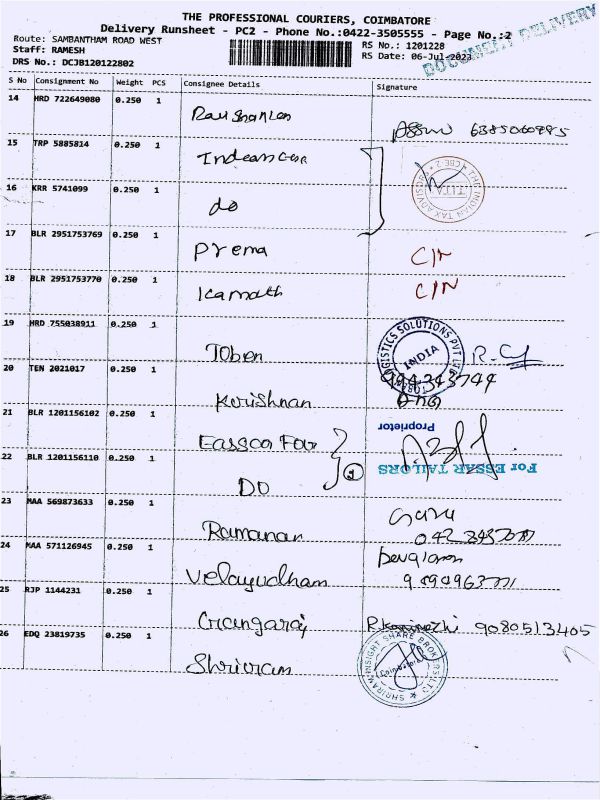 THE PROFESSIONAL COURIERS, COIMBATORE
Delivery Runsheet - PC2 - Phone No.:0422-3505555 - Page No.:2
DOCUMENT DELIVERY
Route: SAMBANTHAM ROAD WEST
RS No.: 1201228
Staff: RAMESH
RS Date: 06-Jul-2023
DRS No.: DCJB120122802
S No Consignment No Weight PCS Consignee Details Signature
14 HRD 722649080 0.250 1
6385060995
15 TRP 5885814 0.250 1
THE INDIAN TAX ADVISORS * CBE-2 * TITA
16 KRR 5741099 0.250 1 do
17 BLR 2951753769 0.250 1 Prema C/N
18 BLR 2951753770 0.250 1 Kamath C/N
19 HRD 755038911 0.250 1 Toben R.G
LOGISTICS SOLUTIONS PVT LTD INDIA
20 TEN 2021017 0.250 1 Krishnan
21 BLR 1201156102 0.250 1
Proprietor
22 BLR 1201156110 0.250 1 DO 2
For ESSAR TAILORS
23 MAA 569873633 0.250 1 Ramanan
24 MAA 571126945 0.250 1 Velayudham
25 RJP 1144231 0.250 1 9080513405
26 EDQ 23819735 0.250 1 Shriram
SHRIRAM INSIGHT SHARE BROKERS LTD Coimbatore